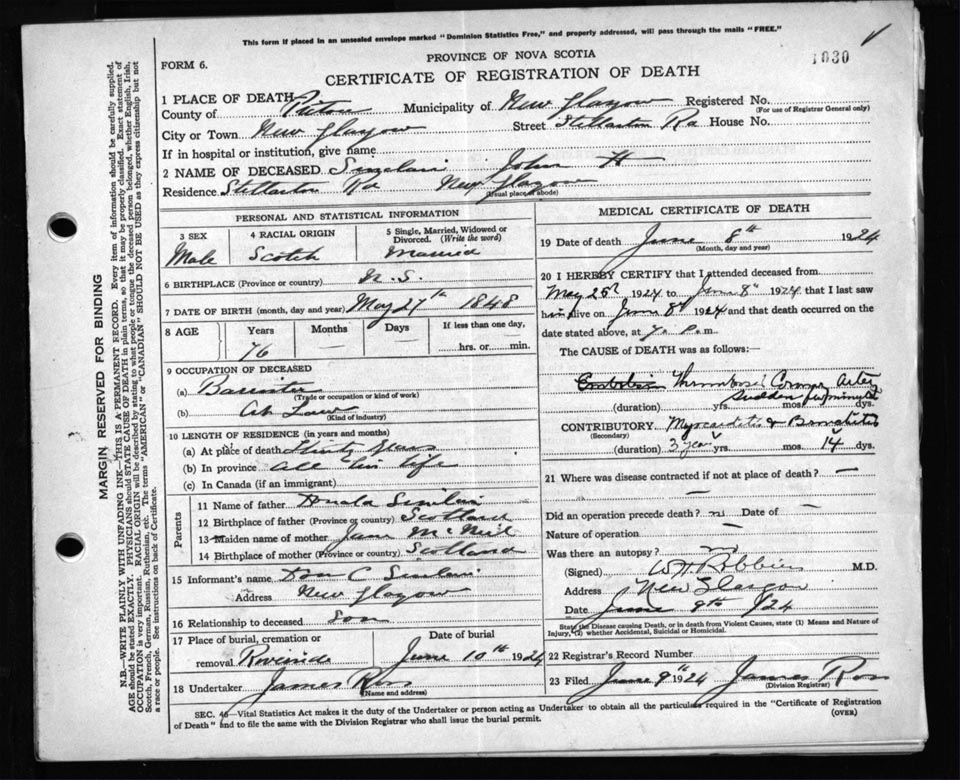 This form if placed in an unsealed envelope marked "Dominion Statistics Free," and properly addressed, will pass through the mails "FREE."
1030
FORM 6.
PROVINCE OF NOVA SCOTIA
CERTIFICATE OF REGISTRATION OF DEATH
1 PLACE OF DEATH
County of Pictou Municipality of New Glasgow Registered No.
(For use of Registrar General only)
City or Town New Glasgow Street Stellarton Rd House No.
If in hospital or institution, give name
2 NAME OF DECEASED Sinclair John H
Residence Stellarton Rd New Glasgow
(Usual place of abode)
PERSONAL AND STATISTICAL INFORMATION
3 SEX Male
4 RACIAL ORIGIN Scotch
5 Single, Married, Widowed or Divorced. (Write the word) Married
6 BIRTHPLACE (Province or country) N.S.
7 DATE OF BIRTH (month, day and year) May 27th 1848
8 AGE Years Months Days If less than one day,
76 hrs. or min.
9 OCCUPATION OF DECEASED
(a) Barrister
(Trade or occupation or kind of work)
(b) At Law
(Kind of industry)
10 LENGTH OF RESIDENCE (in years and months)
(a) At place of death Thirty years
(b) In province All his life
(c) In Canada (if an immigrant)
Parents
11 Name of father Donald Sinclair
12 Birthplace of father (Province or country) Scotland
13 Maiden name of mother Jane McNeil
14 Birthplace of mother (Province or country) Scotland
15 Informant's name Don C Sinclair
Address New Glasgow
16 Relationship to deceased Son
17 Place of burial, cremation or removal Riverside
Date of burial June 10th 1924
18 Undertaker James Ross
(Name and address)
MEDICAL CERTIFICATE OF DEATH
19 Date of death June 8th 1924
(Month, day and year)
20 I HEREBY CERTIFY that I attended deceased from
May 25th 1924 to June 8th 1924 that I last saw
him alive on June 8th 1924 and that death occurred on the
date stated above, at 7 P.m
The CAUSE OF DEATH was as follows:
Embolis Thrombosed Coronary Artery
Sudden few minutes
(duration) yrs. mos. dys.
CONTRIBUTORY Myocarditis & Bronchitis
(Secondary)
(duration) 3 years mos. 14 dys.
21 Where was disease contracted if not at place of death? —
—
Did an operation precede death? no Date of —
Nature of operation —
Was there an autopsy?
(Signed) W H Robbins M.D.
Address New Glasgow
Date June 9th 1924
State the Disease causing Death, or in death from Violent Causes, state (1) Means and Nature of
Injury, (2) whether Accidental, Suicidal or Homicidal.
22 Registrar's Record Number
23 Filed June 9th 1924 James Ross
(Division Registrar)
SEC. 46—Vital Statistics Act makes it the duty of the Undertaker or person acting as Undertaker to obtain all the particulars required in the "Certificate of Registration
of Death" and to file the same with the Division Registrar who shall issue the burial permit. (OVER)
MARGIN RESERVED FOR BINDING
N.B.—WRITE PLAINLY WITH UNFADING INK—THIS IS A PERMANENT RECORD. Every item of information should be carefully supplied.
AGE should be stated EXACTLY. PHYSICIANS should STATE CAUSE OF DEATH in plain terms, so that it may be properly classified. Exact statement of
OCCUPATION is very important. RACIAL ORIGIN will be described by stating to what people or tongue the deceased person belonged, whether English, Irish,
Scotch, French, German, Russian, Ruthenian, etc. The terms "AMERICAN" or "CANADIAN" SHOULD NOT BE USED as they express citizenship but not
a race or people. See instructions on back of Certificate.